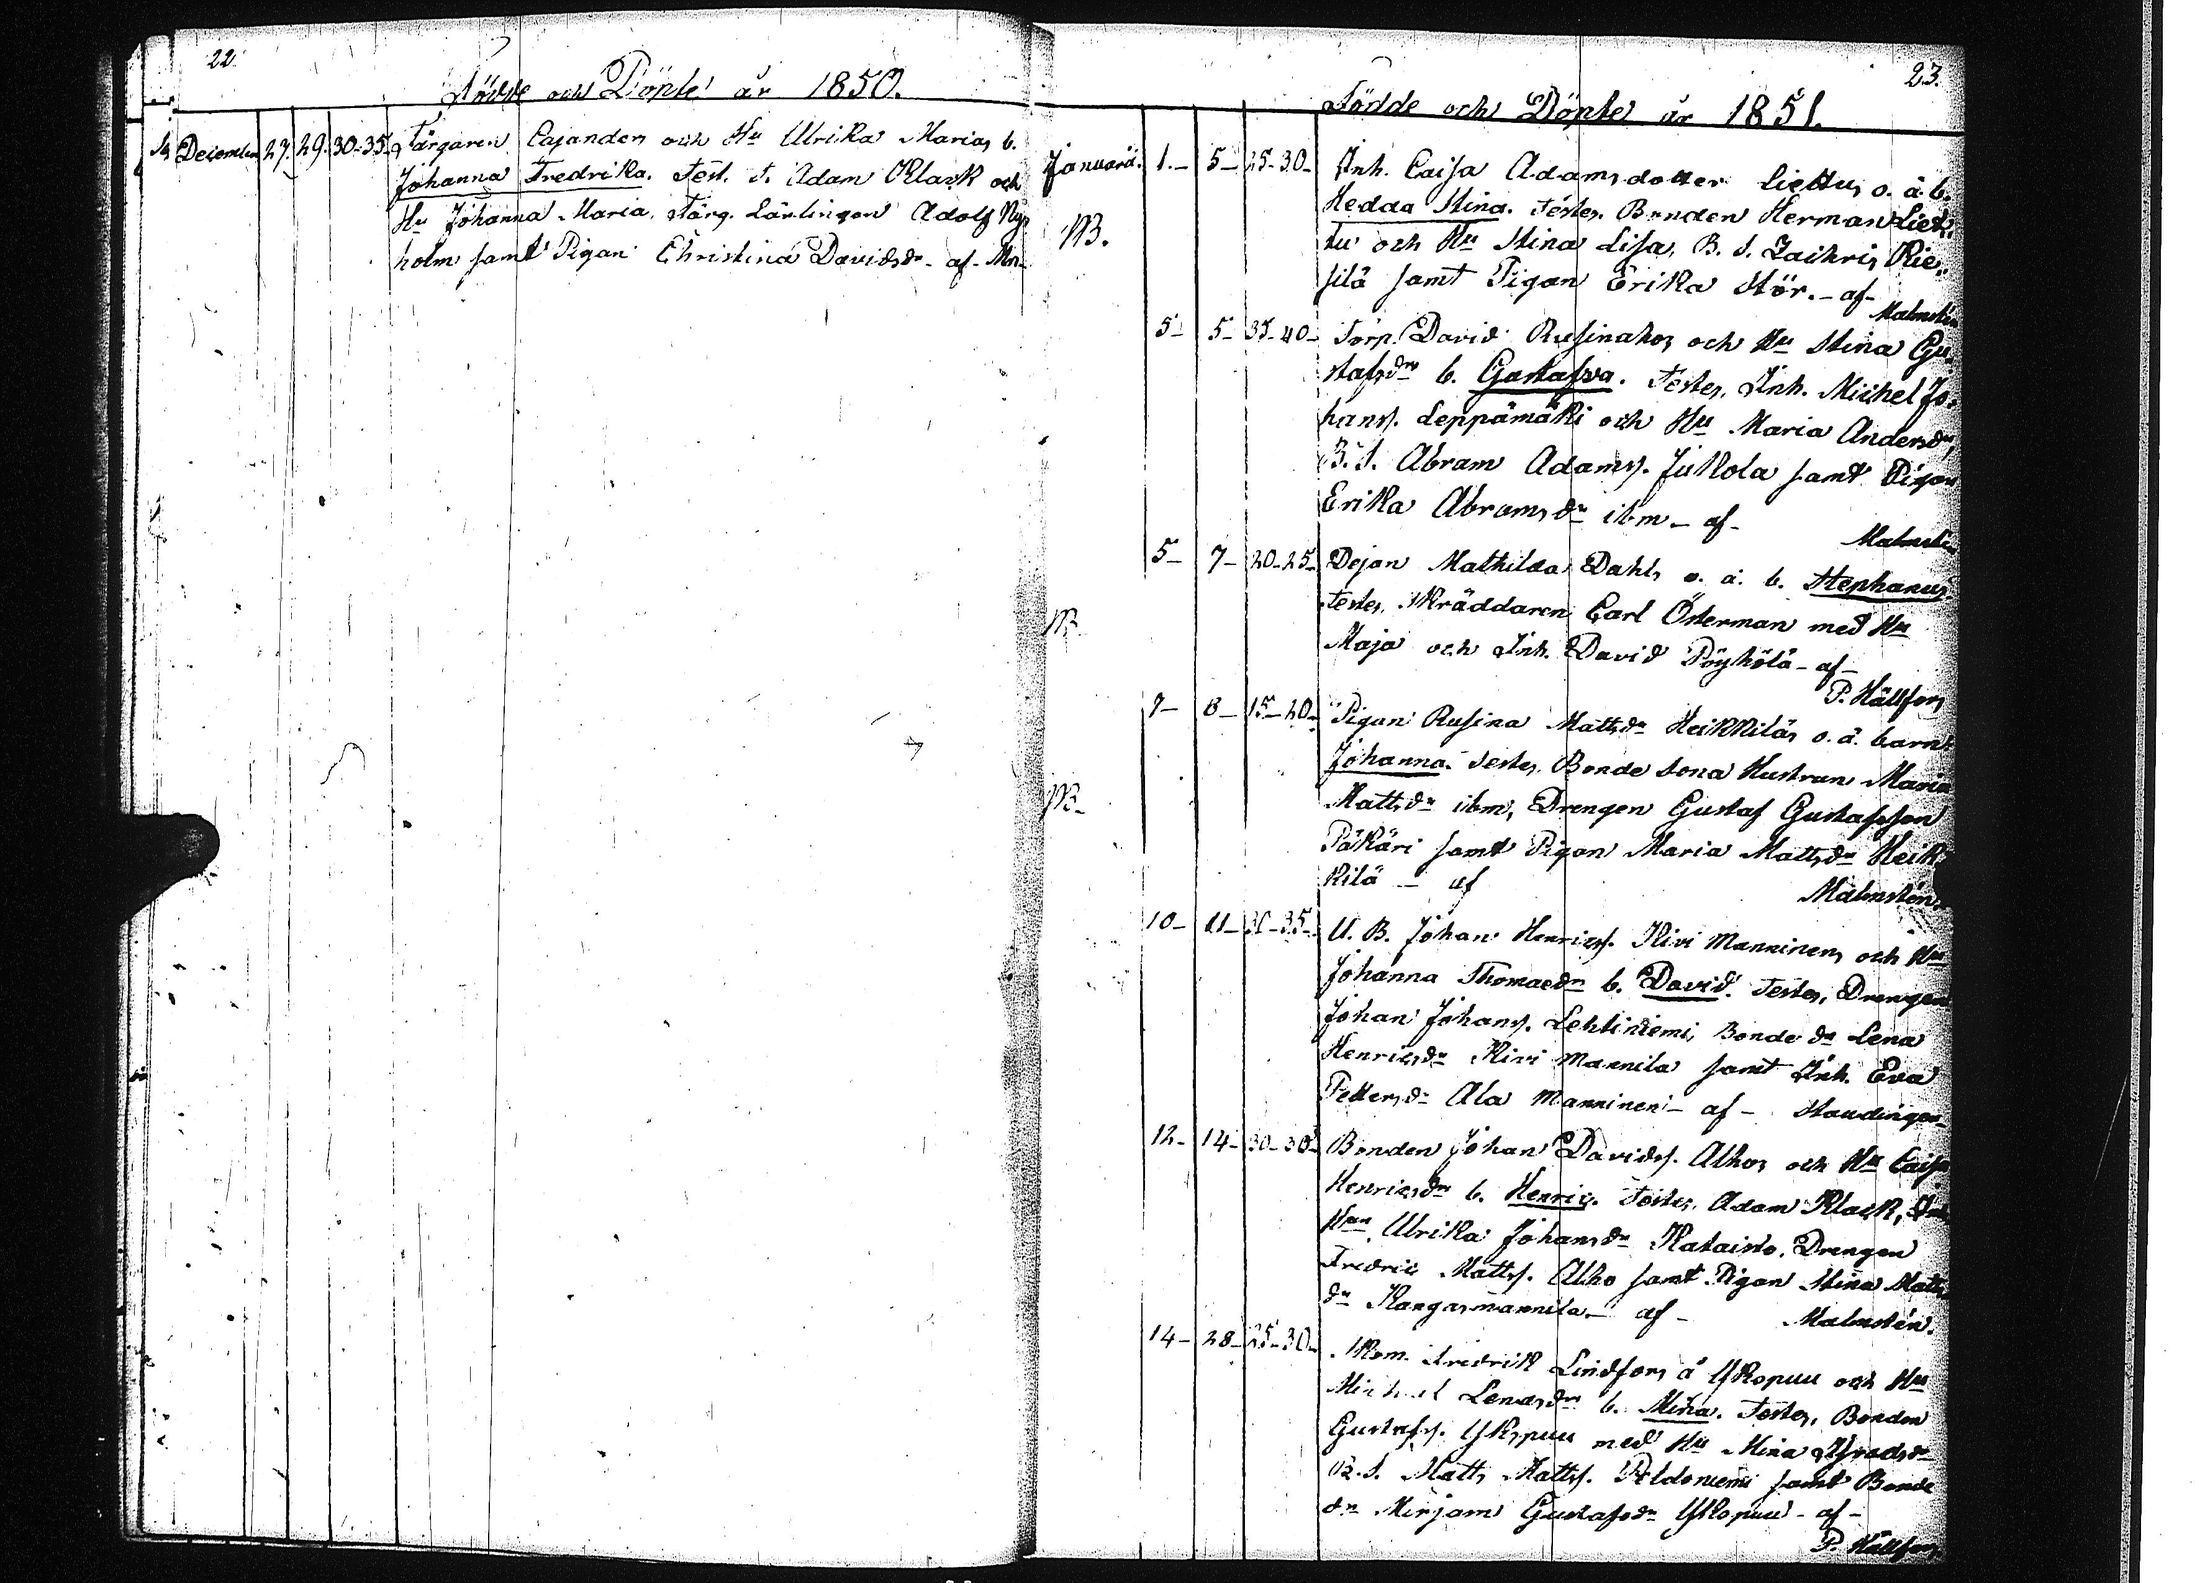 22.
Födde och Döpte år 1850.
December 27. 29. 30-35 Färgaren Cajanders och Hu Ulrika Marias b.
Johanna Fredrika. Test. S. Adam Klack och
Hu Johanna Maria, Färg. Lärlingen Adolf Ny-
holm samt Pigan Christina Davidsdr - af - Mn
23.
Födde och Döpte år 1851.
Januarii. 1.- 5- 25-30- Inh. Caisa Adamsdotter Liettus o. ä. b.
Hedda Stina. Testes. Bonden Herman Liet-
tu och Hu Stina Lisa, B. S. Zachris Rie-
silä samt Pigan Erika Stör. - af -
Malmstén
5- 5- 35-40- Torp. David Rusinahos och Hu Stina Gu-
stafsdrs b. Gustafva. Testes, Inh. Michel Jo-
hans. Leppämäki och Hu Maria Andersdr,
B. S. Abram Adams. Jukola samt Pigan
Erika Abramsdr ibm - af -
Malmstén
5- 7- 20-25- Dejan Mathilda Dahls o. ä. b. Stephanus
Testes, Skräddaren Carl Österman med Hu
Maja och Inh. David Pöyhölä - af -
P. Hällfors
7- 8- 15-20- Pigan Rusina Mattsdr Heikkiläs o. ä. barn
Johanna. Testes, Bonde Sona Hustrun Maria
Mattsdr ibm, Drengen Gustaf Gustafsson
Päkäri samt Pigan Maria Mattsdr Heik-
kilä - af
Malmstén.
10- 11- 31-35- U. B. Johan Henrics. Kivi Manninens och Hu
Johanna Thomaedrs b. David. Testes, Drengen
Johan Johans. Lehtiniemi, Bonde dr Lena
Henricsdr Kivi Mannila samt Inh. Eva
Pettersdr Ala Manninen - af - Staudinger
12- 14- 30-30- Bonden Johan Davids. Alhos och Hu Caisa
Henricsdrs b. Henric. Testes, Adam Klack,
Hun Ulrika Johansdr Kataisto, Drengen
Fredric Matts. Alho samt Pigan Stina Matts
dr Kangasmannila - af - Malmstén.
14- 28- 25-30- Skom. Fredrik Lindfors å Yskopuu och Hu
Lenasdrs b. Mina. Testes, Bonden
Gustafs. Yskopuu med Hu Mina
B. S. Matts Matts. Peldoniemi samt Bonde
dr Mirjam Gustafsdr Yskopuu - af -
P. Hällfors